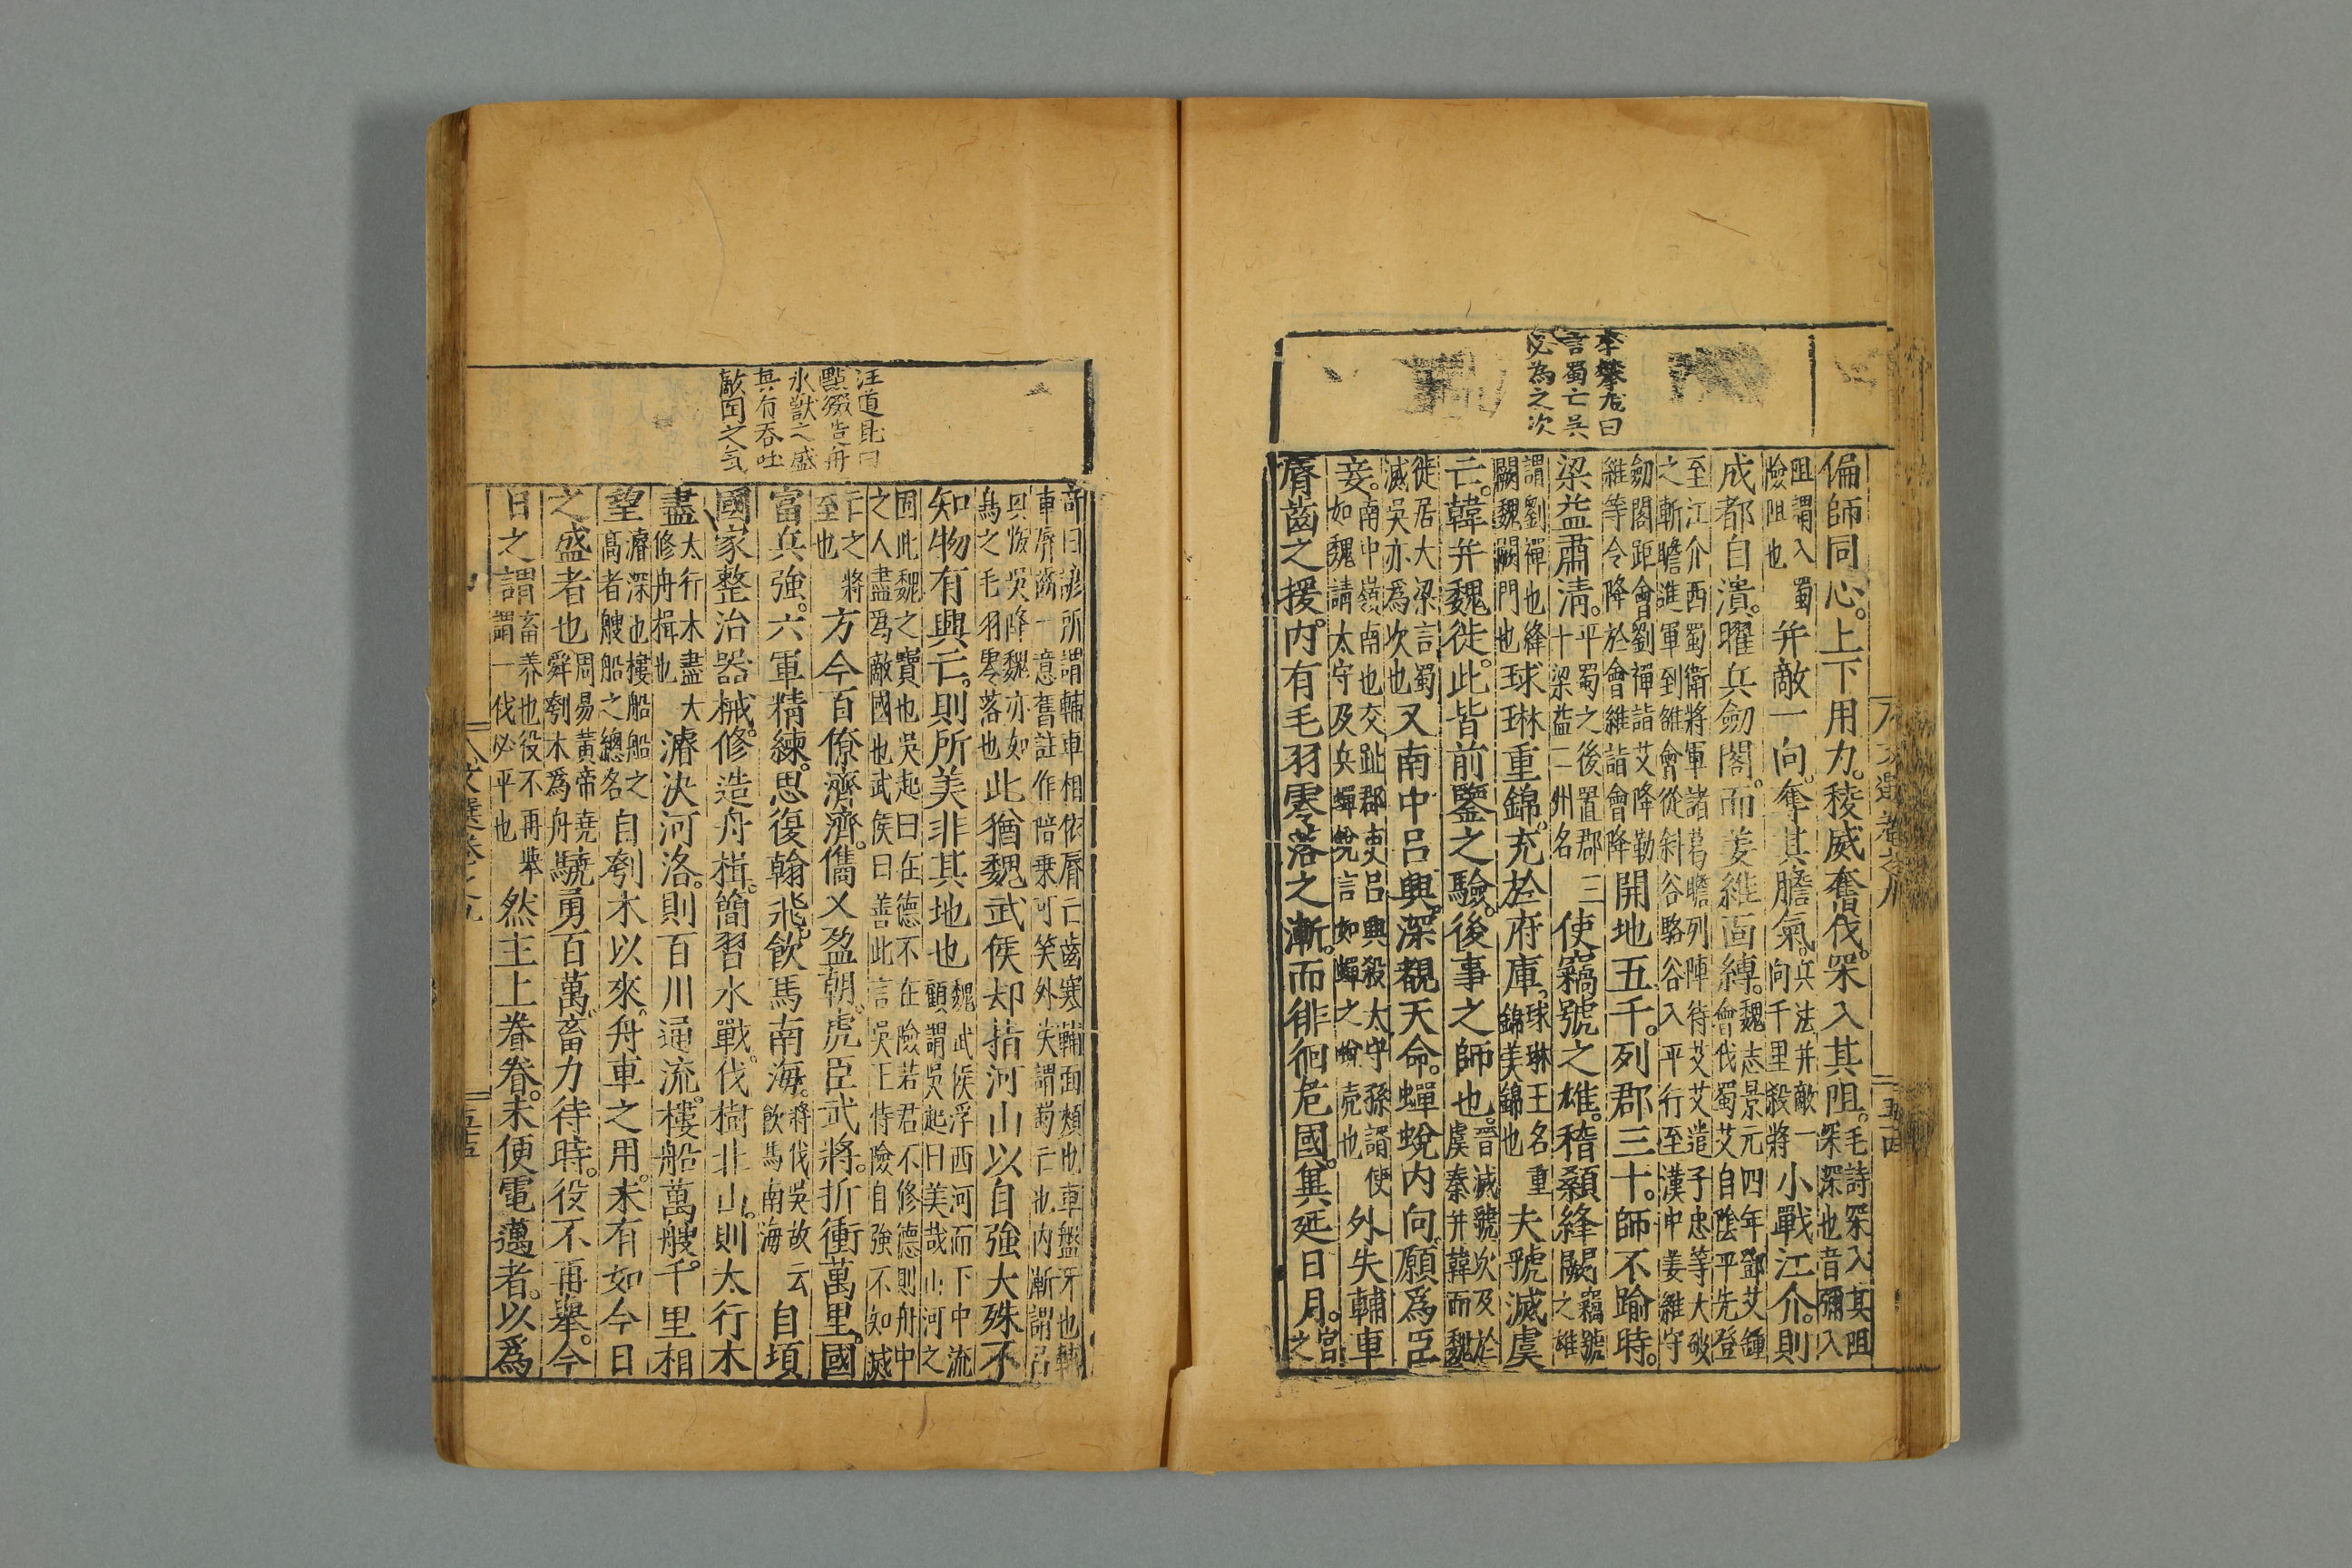 李攀龙曰
言蜀亡吳
必為之次
偏師同心上下用力稜威奮伐罙入其阻毛詩罙入其阻
罙深也音彌入
阻謂入蜀
險阻也
并敵一向奪其膽氣兵法并敵一
向千里殺將
小戰江介則
成都自潰曜兵劒閣而姜維面縛魏志景元四年鄧艾鍾
會伐蜀艾自陰平先登
至江介西蜀衛將軍諸葛瞻列陣待艾艾遣子忠等大破
之斬瞻進軍到雒會從斜谷駱谷入平行至漢中姜維守
劒閣距會劉禪詣艾降勒
維等令降於會維詣會降
開地五千列郡三十師不踰時
梁益肅清平蜀之後置郡三
十梁益二州名
使竊號之雄稽顙絳闕竊號
之雄
謂劉禪也絳
闕魏闕門也
球琳重錦充於府庫球琳王名重
錦美錦也
夫虢滅虞
亡韓并魏徙此皆前鑒之驗後事之師也晉滅虢次及於
虞秦并韓而魏
徙居大梁言蜀
滅吳亦為次也
又南中呂興深覩天命蟬蛻內向願為臣
妾南中嶺南也交趾郡吏呂興殺太守孫諝使
如魏請太守及兵蟬蛻言如蟬之蛻殼也
外失輔車
脣齒之援內有毛羽零落之漸而徘徊危國冀延日月宮
之
文選卷之九
五十四
汪道昆曰
點綴造舟
水獸之盛
其有吞吐
敵国之氣
奇曰諺所謂輔車相依脣亡齒寒輔面頰也車盤牙也輔
車脣齒一意舊註作陪乘可笑外失謂蜀亡也內漸謂呂
興叛吳降魏亦如
鳥之毛羽零落也
此猶魏武侯却指河山以自強大殊不
知物有興亡則所美非其地也魏武侯浮西河而下中流
顧謂吳起曰美哉山河之
固此魏之寶也吳起曰在德不在險若君不修德則舟中
之人盡為敵國也武侯曰善此言吳王恃險自強不知滅
亡之將
至也
方今百僚濟濟儁乂盈朝虎臣武將折衝萬里國
富兵強六軍精練思復翰飛飲馬南海將伐吳故云
飲馬南海
自頃
國家整治器械修造舟楫簡習水戰伐樹北山則太行木
盡太行木盡大
修舟楫也
濬決河洛則百川通流樓船萬艘千里相
望濬深也樓船船之
高者艘船之總名
自刳木以來舟車之用未有如今日
之盛者也周易黃帝堯
舜刳木為舟
驍勇百萬畜力待時役不再舉今
日之謂畜养也役不再舉
謂一伐必平也
然主上眷眷未便電邁者以為
文選卷之九
五十五